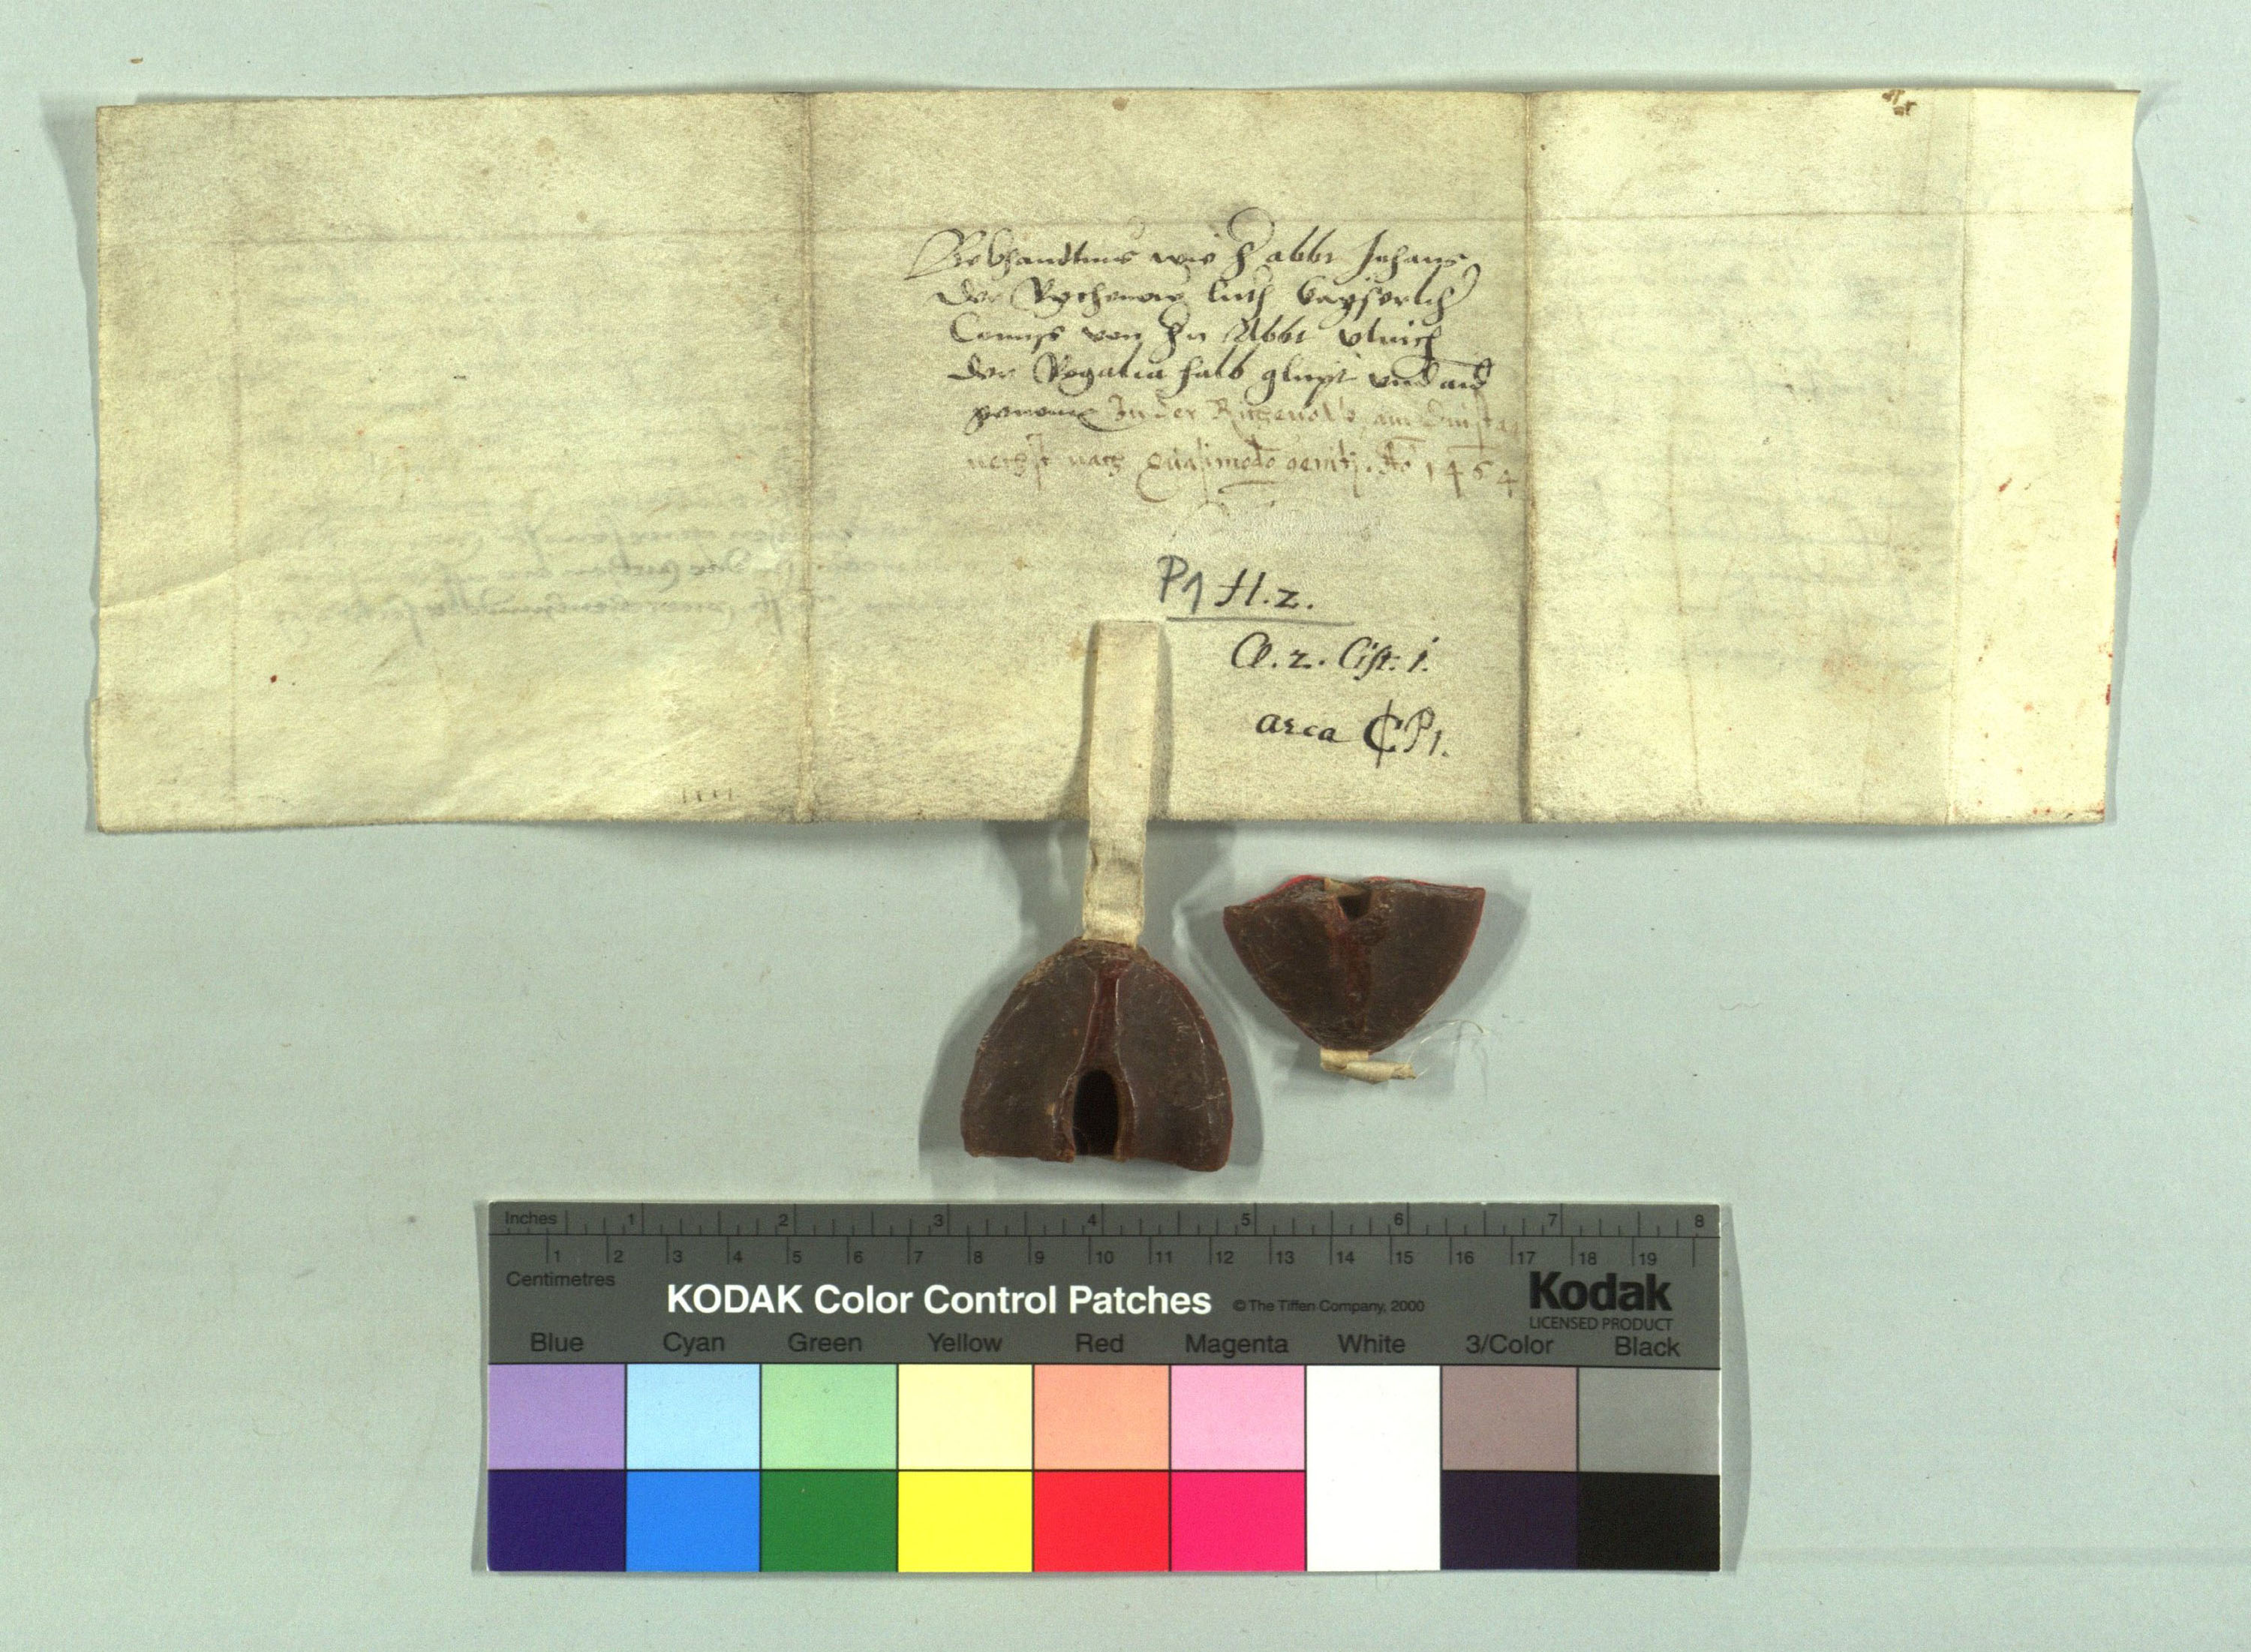 wie H abbt Johans
der Rychenow luth kayserlich
Comiss von Hn Abbt Ulrich
der Regalia halb glupt und aid
genomen In der Richenow am Zinstag
nechst nach Quasimodo geniti. Ao 1464
P1 H.2.
Cl. 2. Cist: 1.
arca CP1.
Inches 1 2 3 4 5 6 7 8
1 2 3 4 5 6 7 8 9 10 11 12 13 14 15 16 17 18 19
Centimetres
KODAK Color Control Patches © The Tiffen Company, 2000 Kodak
LICENSED PRODUCT
Blue Cyan Green Yellow Red Magenta White 3/Color Black